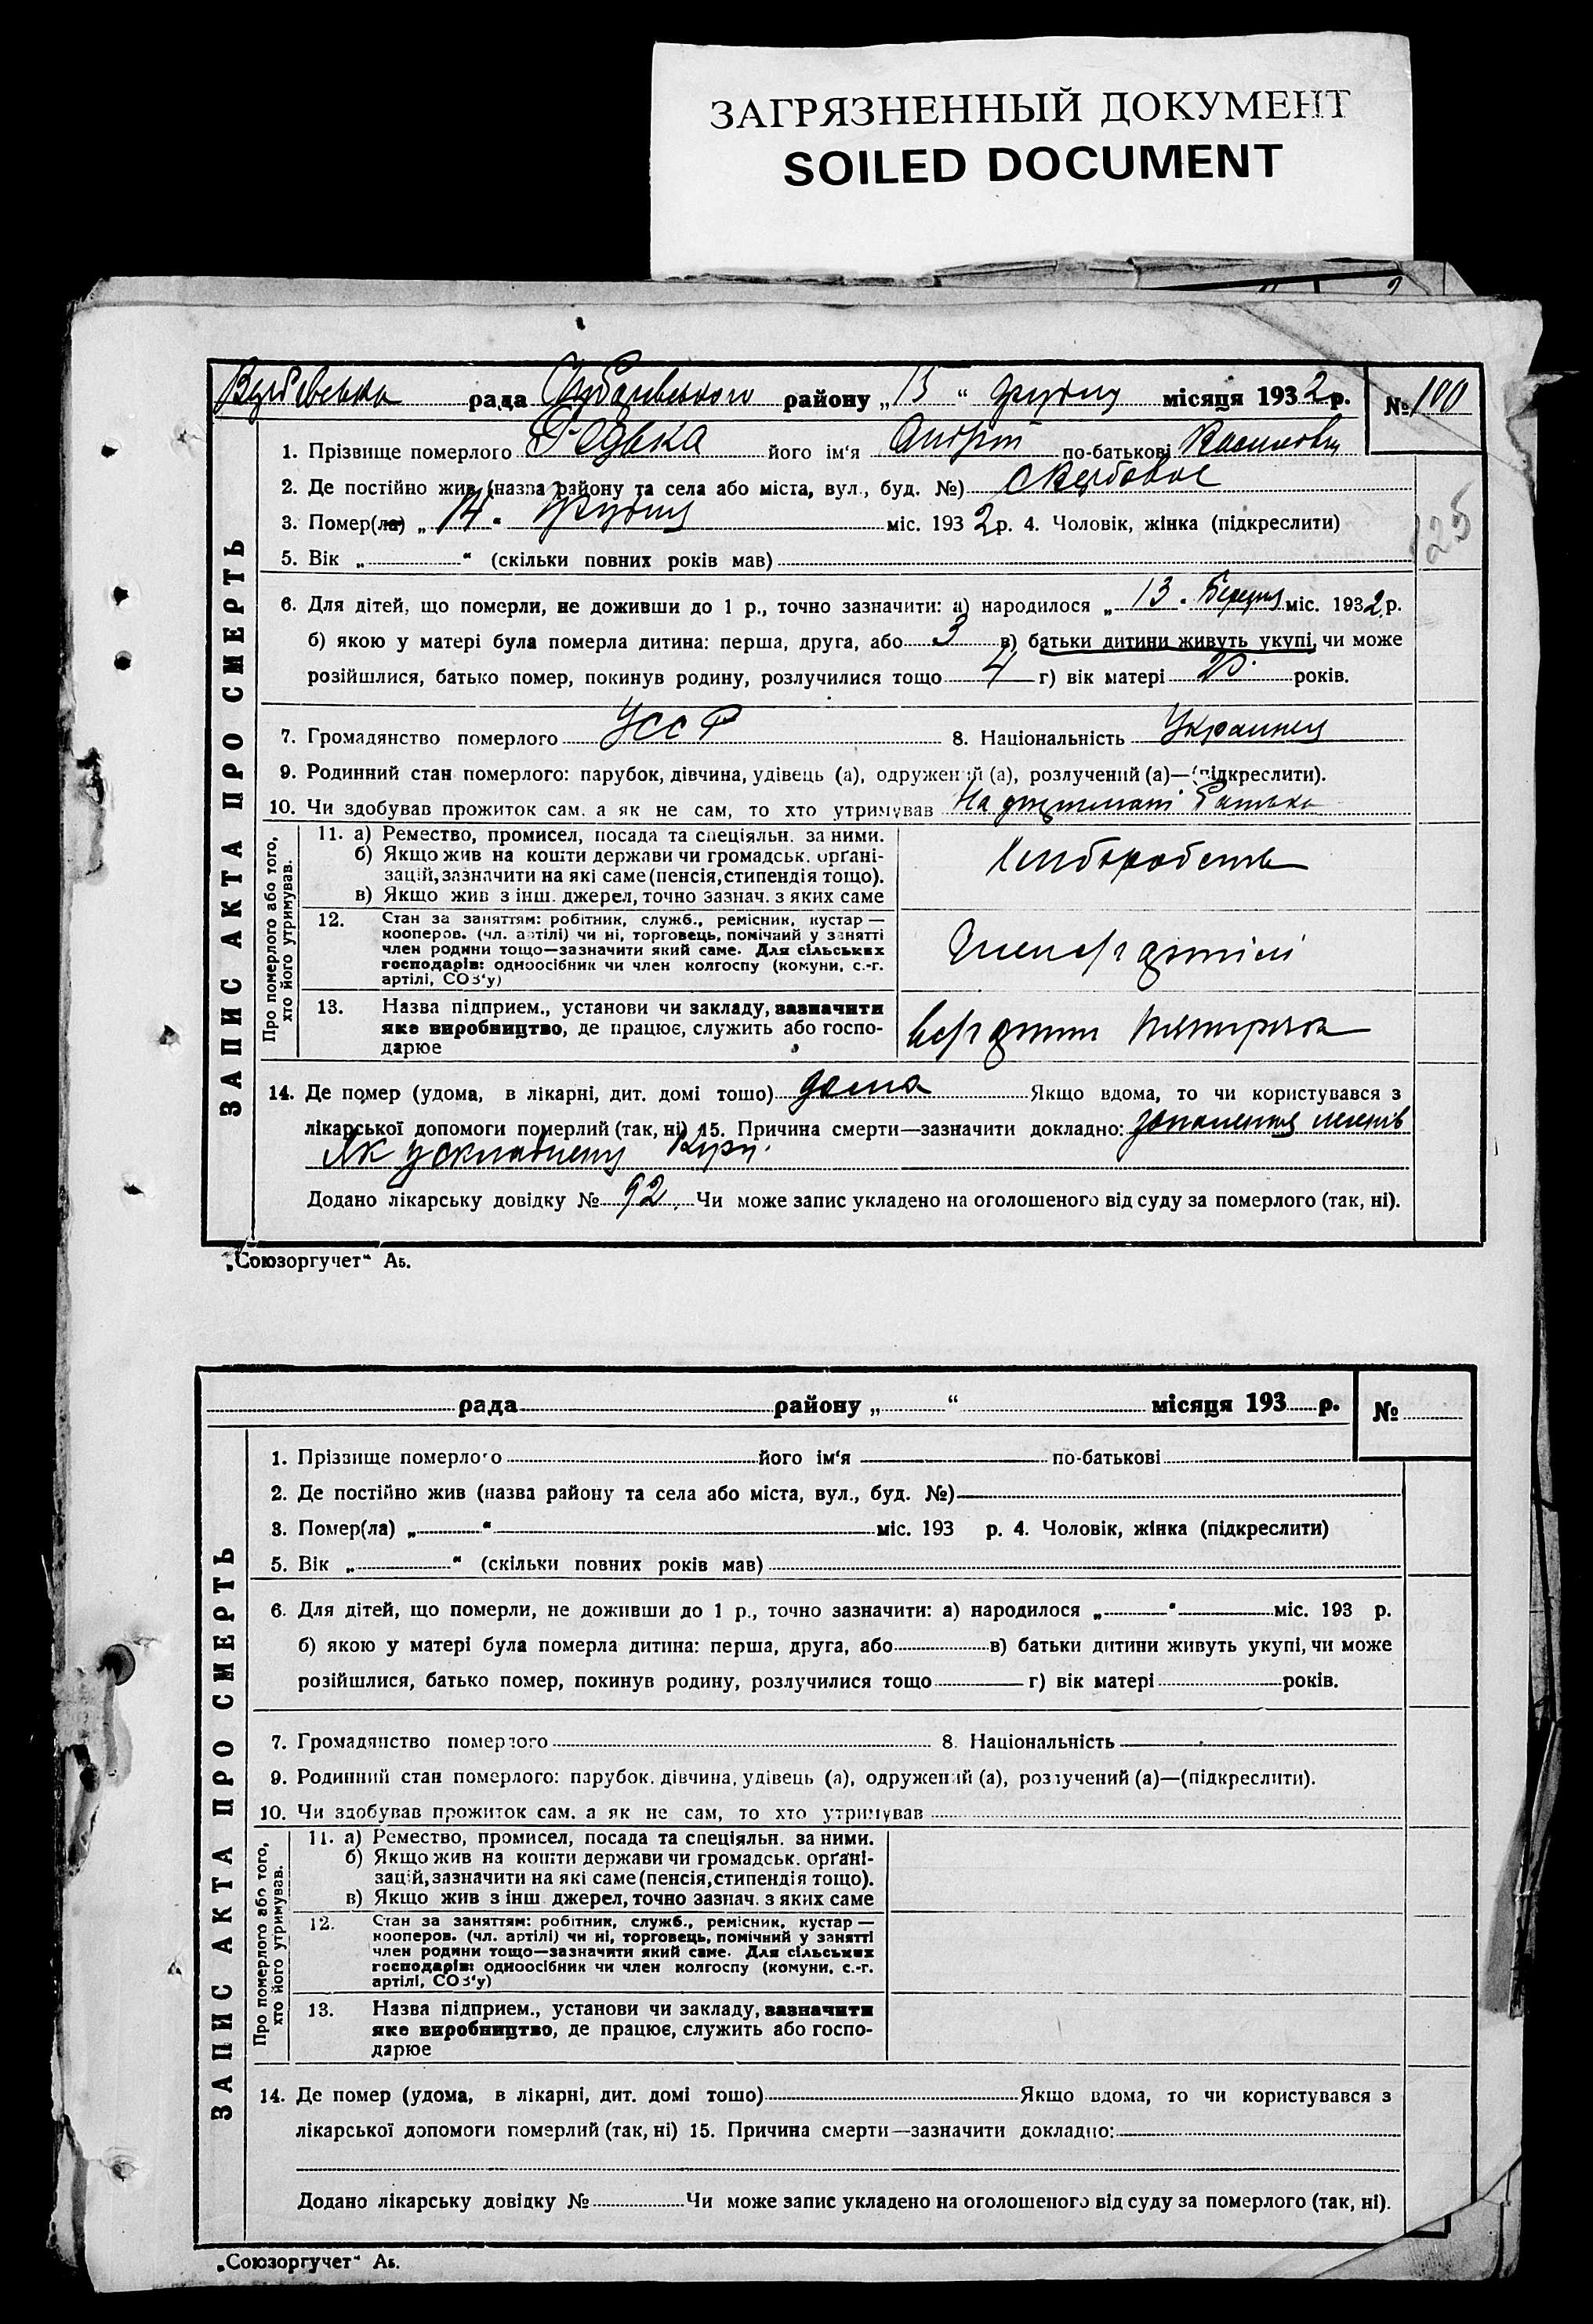 ЗАГРЯЗНЕННЫЙ ДОКУМЕНТ
SOILED DOCUMENT
рада району „15“ грудня місяця 1932 р. № 100
ЗАПИС АКТА ПРО СМЕРТЬ
1. Прізвище померлого Редька його ім'я по-батькові
2. Де постійно жив (назва району та села або міста, вул., буд. №) с Вербове
3. Помер(ла) „14“ грудня міс. 1932 р. 4. Чоловік, жінка (підкреслити)
125
5. Вік „ “ (скільки повних років мав)
6. Для дітей, що померли, не доживши до 1 р., точно зазначити: а) народилося „13“ Березня міс. 1932 р.
б) якою у матері була померла дитина: перша, друга, або 3 в) батьки дитини живуть укупі, чи може
розійшлися, батько помер, покинув родину, розлучилися тощо 4 г) вік матері років.
7. Громадянство померлого УССР 8. Національність Украинец
9. Родинний стан померлого: парубок, дівчина, удівець (а), одружений (а), розлучений (а)—(підкреслити).
10. Чи здобував прожиток сам, а як не сам, то хто утримував На Батька
Про померлого або того,
хто його утримував.
11. а) Ремество, промисел, посада та спеціяльн. за ними.
б) Якщо жив на кошти держави чи громадськ. орґані-
зацій, зазначити на які саме (пенсія, стипендія тощо).
в) Якщо жив з інш. джерел, точно зазнач. з яких саме
Хлиборобств
12. Стан за заняттям: робітник, служб., ремісник, кустар —
кооперов. (чл. артілі) чи ні, торговець, помічний у занятті
член родини тощо—зазначити який саме. Для сільських
господарів: одноосібник чи член колгоспу (комуни, с.-г.
артілі, СОЗ'у)
Член с/г артілі
13. Назва підприєм., установи чи закладу, зазначити
яке виробництво, де працює, служить або госпо-
дарює
14. Де помер (удома, в лікарні, дит. домі тошо) дома Якщо вдома, то чи користувався з
лікарської допомоги померлий (так, ні) 15. Причина смерти—зазначити докладно: запалення легенів
Як ускладнення Кору.
Додано лікарську довідку № 92 Чи може запис укладено на оголошеного від суду за померлого (так, ні).
„Союзоргучет“ Аь.
рада району „ “ місяця 193 р. №
ЗАПИС АКТА ПРО СМЕРТЬ
1. Прізвище померлого його ім'я по-батькові
2. Де постійно жив (назва району та села або міста, вул., буд. №)
3. Помер(ла) „ “ міс. 193 р. 4. Чоловік, жінка (підкреслити)
5. Вік „ “ (скільки повних років мав)
6. Для дітей, що померли, не доживши до 1 р., точно зазначити: а) народилося „ “ міс. 193 р.
б) якою у матері була померла дитина: перша, друга, або в) батьки дитини живуть укупі, чи може
розійшлися, батько помер, покинув родину, розлучилися тощо г) вік матері років.
7. Громадянство померлого 8. Національність
9. Родинний стан померлого: парубок, дівчина, удівець (а), одружений (а), розлучений (а)—(підкреслити).
10. Чи здобував прожиток сам, а як не сам, то хто утримував
Про померлого або того,
хто його утримував.
11. а) Ремество, промисел, посада та спеціяльн. за ними.
б) Якщо жив на кошти держави чи громадськ. орґані-
зацій, зазначити на які саме (пенсія, стипендія тощо).
в) Якщо жив з інш. джерел, точно зазнач. з яких саме
12. Стан за заняттям: робітник, служб., ремісник, кустар —
кооперов. (чл. артілі) чи ні, торговець, помічний у занятті
член родини тощо—зазначити який саме. Для сільських
господарів: одноосібник чи член колгоспу (комуни, с.-г.
артілі, СОЗ'у)
13. Назва підприєм., установи чи закладу, зазначити
яке виробництво, де працює, служить або госпо-
дарює
14. Де помер (удома, в лікарні, дит. домі тошо) Якщо вдома, то чи користувався з
лікарської допомоги померлий (так, ні) 15. Причина смерти—зазначити докладно:
Додано лікарську довідку № Чи може запис укладено на оголошеного від суду за померлого (так, ні).
„Союзоргучет“ Аь.